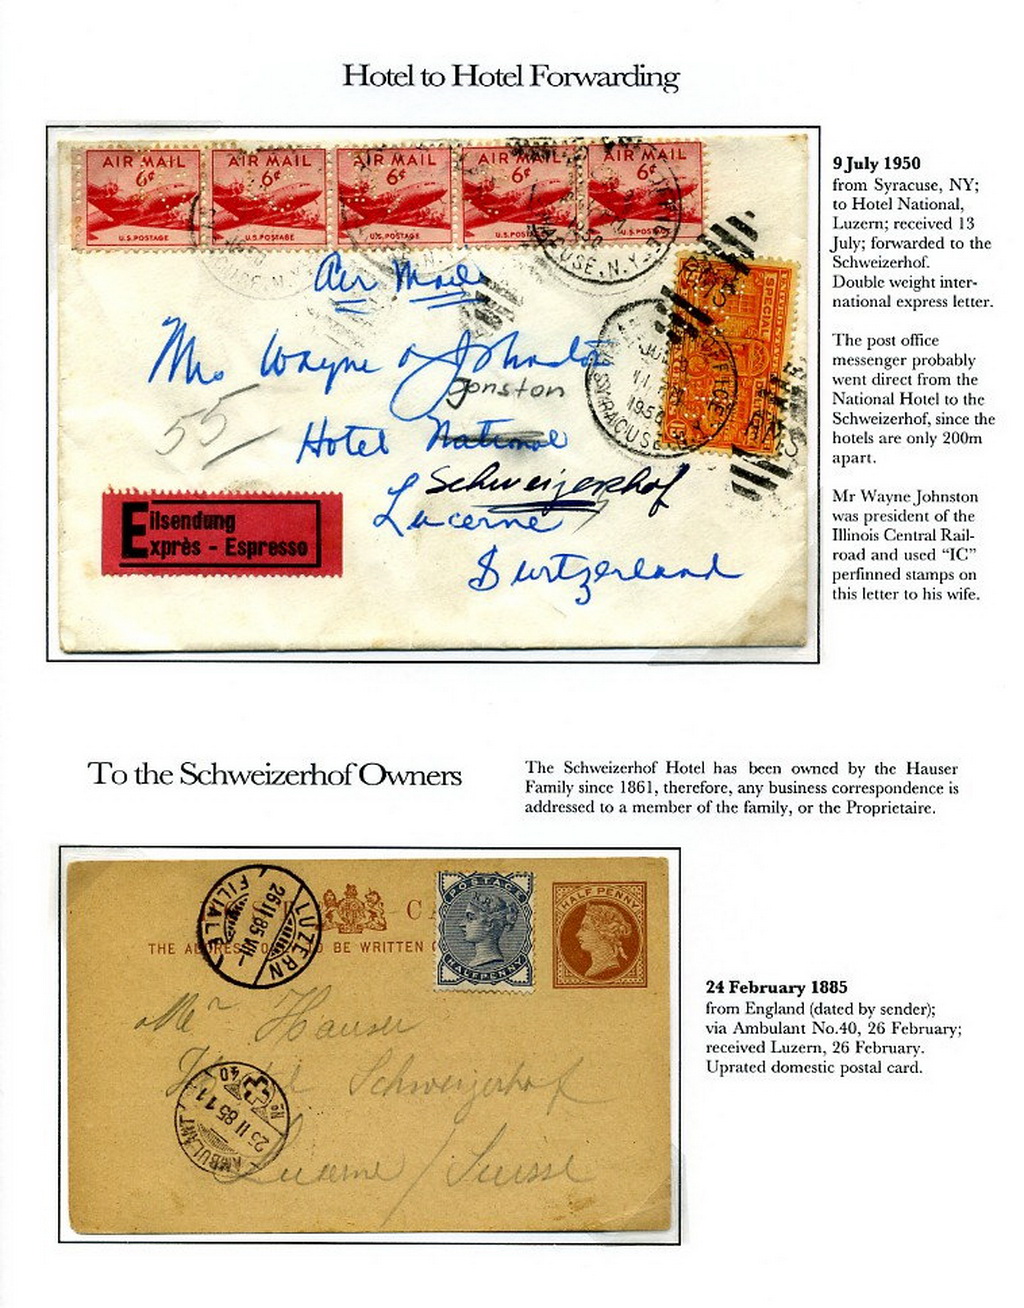 Hotel to Hotel Forwarding
AIR MAIL AIR MAIL AIR MAIL AIR MAIL AIR MAIL
6¢ 6¢ 6¢ 6¢ 6¢
U.S. POSTAGE U.S. POSTAGE U.S. POSTAGE U.S. POSTAGE U.S. POSTAGE
SYRACUSE, N.Y.
1950
SPECIAL
Air Mail
Mrs Wayne A Johnston
Jonston
55
Hotel National
Schweizerhof
Lucerne
Switzerland
Eilsendung
Exprès - Espresso
9 July 1950
from Syracuse, NY;
to Hotel National,
Luzern; received 13
July; forwarded to the
Schweizerhof.
Double weight inter-
national express letter.
The post office
messenger probably
went direct from the
National Hotel to the
Schweizerhof, since the
hotels are only 200m
apart.
Mr Wayne Johnston
was president of the
Illinois Central Rail-
road and used “IC”
perfinned stamps on
this letter to his wife.
To the Schweizerhof Owners
The Schweizerhof Hotel has been owned by the Hauser
Family since 1861, therefore, any business correspondence is
addressed to a member of the family, or the Proprietaire.
LUZERN
26 II 85 VII-
FILIALE
POSTAGE
HALFPENNY
HALF PENNY
THE ADDRESS O TO BE WRITTEN
Mr Hauser
Hotel Schweizerhof
Lucerne / Suisse
AMBULANT
No 40
24 February 1885
from England (dated by sender);
via Ambulant No.40, 26 February;
received Luzern, 26 February.
Uprated domestic postal card.